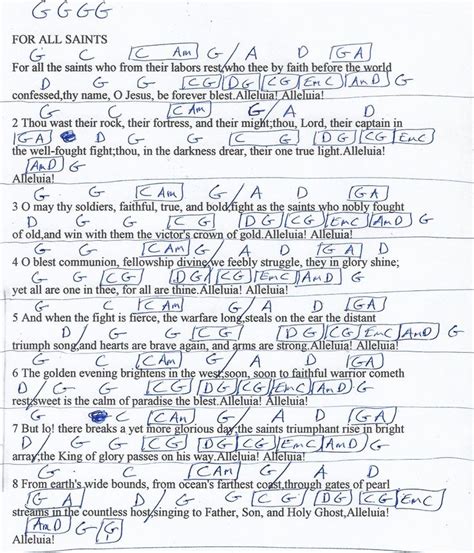 G G G G
FOR ALL SAINTS
G G [C Am] G/ A D [G A]
For all the saints who from their labors rest,who thee by faith before the world
D G G [C G] [D G] [C G] [Em C] [Am D] G
confessed,thy name, O Jesus, be forever blest.Alleluia! Alleluia!
G C [C Am] G/ A D
2 Thou wast their rock, their fortress, and their might;thou, Lord, their captain in
[G A] D G G [C G] [D G] [C G] [Em C]
the well-fought fight;thou, in the darkness drear, their one true light.Alleluia!
[Am D] G
Alleluia!
G G [C Am] G/ A D [G A]
3 O may thy soldiers, faithful, true, and bold,fight as the saints who nobly fought
D G G [C G] [D G] [C G] [Em C] [Am D] G
of old,and win with them the victor's crown of gold.Alleluia! Alleluia!
G G [C Am] G/ A D [G A]
4 O blest communion, fellowship divine,we feebly struggle, they in glory shine;
D/ G G [C G] [D G] [C G] [Em C] [Am D] G
yet all are one in thee, for all are thine.Alleluia! Alleluia!
G C [C Am] G/ A D [G A]
5 And when the fight is fierce, the warfare long,steals on the ear the distant
D/ G G [C G] [D G] [C G] [Em C] [Am D] G
triumph song,and hearts are brave again, and arms are strong.Alleluia! Alleluia!
G C [C Am] G/ A D [G A]
6 The golden evening brightens in the west;soon, soon to faithful warrior cometh
D/ G G [C G] [D G] [C G] [Em C] [Am D] G
rest;sweet is the calm of paradise the blest.Alleluia! Alleluia!
G C [C Am] G/ A D [G A]
7 But lo! there breaks a yet more glorious day;the saints triumphant rise in bright
D/ G G [C G] [D G] [C G] [Em C] [Am D] G
array;the King of glory passes on his way.Alleluia! Alleluia!
G C [C Am] G/ A D
8 From earth's wide bounds, from ocean's farthest coast,through gates of pearl
[G A] D G G [C G] [D G] [C G] [Em C]
streams in the countless host,singing to Father, Son, and Holy Ghost,Alleluia!
[Am D] G/[G]
Alleluia!